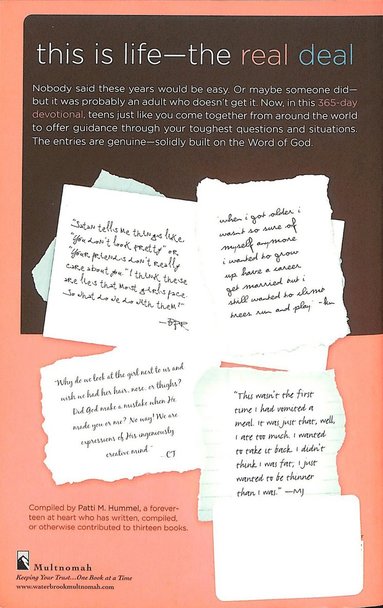 this is life—the real deal
Nobody said these years would be easy. Or maybe someone did—
but it was probably an adult who doesn't get it. Now, in this 365-day
devotional, teens just like you come together from around the world
to offer guidance through your toughest questions and situations.
The entries are genuine—solidly built on the Word of God.
"Satan tells me things like,
"You don't look pretty" or
"Your friends don't really
care about you." I think these
are lies that most girls face.
So what do we do with them?"
—BPR
when i got older i
wasnt so sure of
myself anymore
i wanted to grow
up have a career
get married but i
still wanted to climb
trees run and play
"Why do we look at the girl next to us and
wish we had her hair, nose, or thighs?
Did God make a mistake when He
made you or me? No way! We are
expressions of His ingeniously
creative mind" -CJ
"This wasn't the first
time I had vomited a
meal. It was just that, well,
I ate too much. I wanted
to take it back. I didn't
think I was fat, I just
wanted to be thinner
than I was." —MJ
Compiled by Patti M. Hummel, a forever-
teen at heart who has written, compiled,
or otherwise contributed to thirteen books.
Multnomah
Keeping Your Trust...One Book at a Time
www.waterbrookmultnomah.com